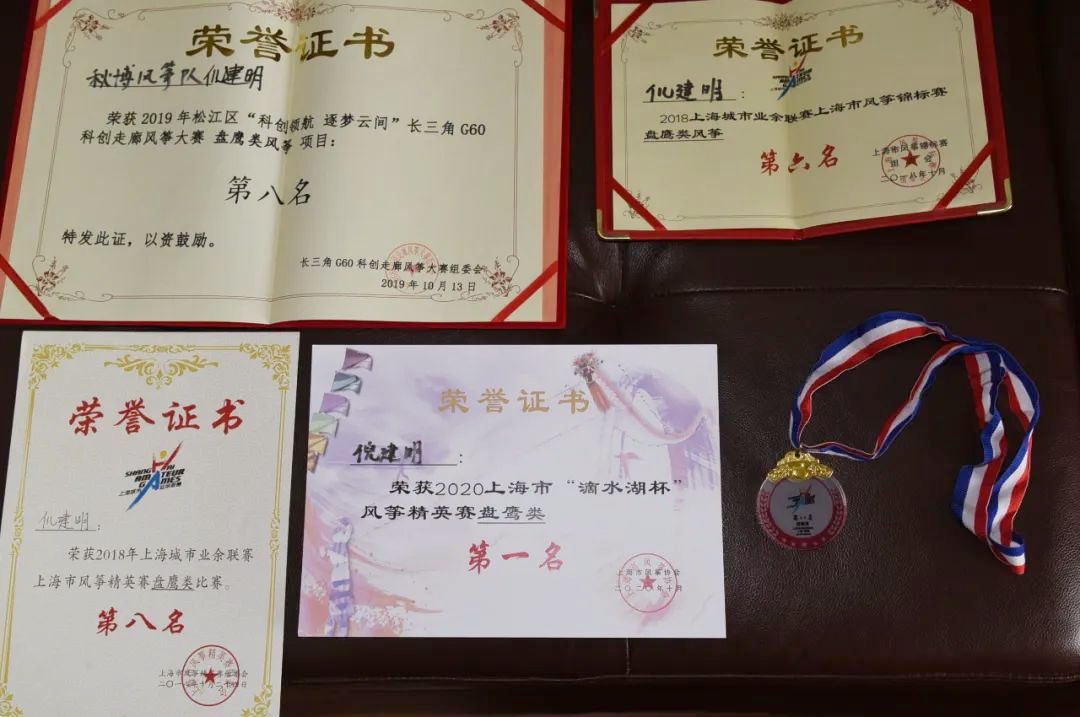 荣誉证书
秋博风筝队仉建明
荣获2019年松江区“科创领航 逐梦云间”长三角G60
科创走廊风筝大赛 盘鹰类风筝 项目：
第八名
特发此证，以资鼓励。
长三角G60科创走廊风筝大赛组委会
2019年10月13日
荣誉证书
仉建明：
2018上海城市业余联赛上海市风筝锦标赛
盘鹰类风筝
第六名
上海市风筝锦标赛
组 委 会
二〇一八年十月
荣誉证书
SHANGHAI
AMATEUR
GAMES
仉建明：
荣获2018年上海城市业余联赛
上海市风筝精英赛盘鹰类比赛。
第八名
荣誉证书
倪建明：
荣获2020上海市“滴水湖杯”
风筝精英赛盘鹰类
第一名
上海市风筝协会
二〇二〇年十月